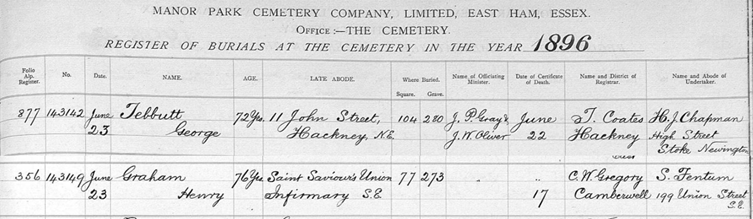 MANOR PARK CEMETERY COMPANY, LIMITED, EAST HAM, ESSEX.
OFFICE:—THE CEMETERY.
REGISTER OF BURIALS AT THE CEMETERY IN THE YEAR 1896
Folio Alp. Register. No. Date. NAME. AGE. LATE ABODE. Where Buried. Square. Grave. Name of Officiating Minister. Date of Certificate of Death. Name and District of Registrar. Name and Abode of Undertaker.
877 143142 June Tebbutt 72 Yrs 11 John Street, 104 280 J. P. Gray & June T. Coates H. J. Chapman
23 George Hackney, N.E J. W. Oliver 22 Hackney High Street
Stoke Newington
356 143149 June Graham 76 Yrs Saint Saviour's Union 77 273 " " C. W. Gregory S. Fentum
23 Henry Infirmary S.E 17 Camberwell 199 Union Street
S.E.